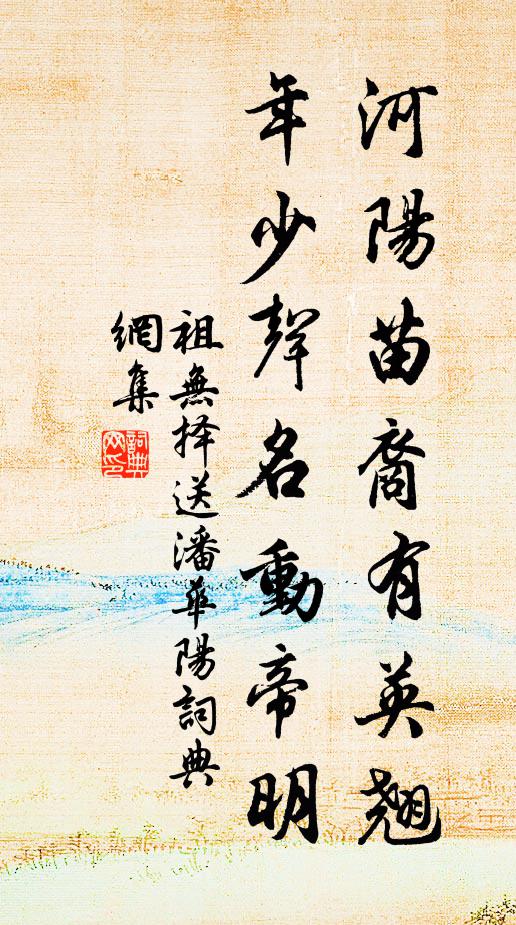 河陽苗裔有英翹
年少聲名動帝明
祖無择送潘華陽詞典
網集
詞典
网印